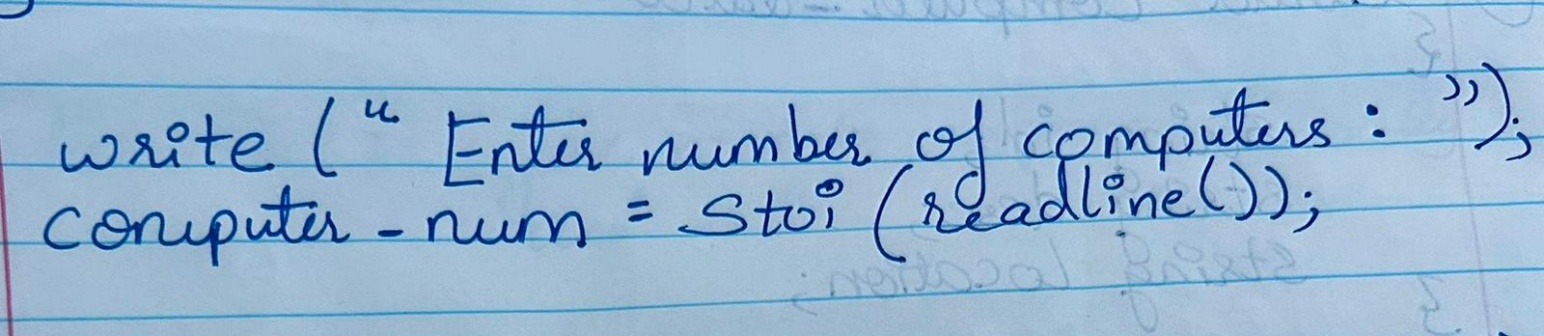 write (“ Enter number of computers : ”);
computer_num = Stoi (readline());